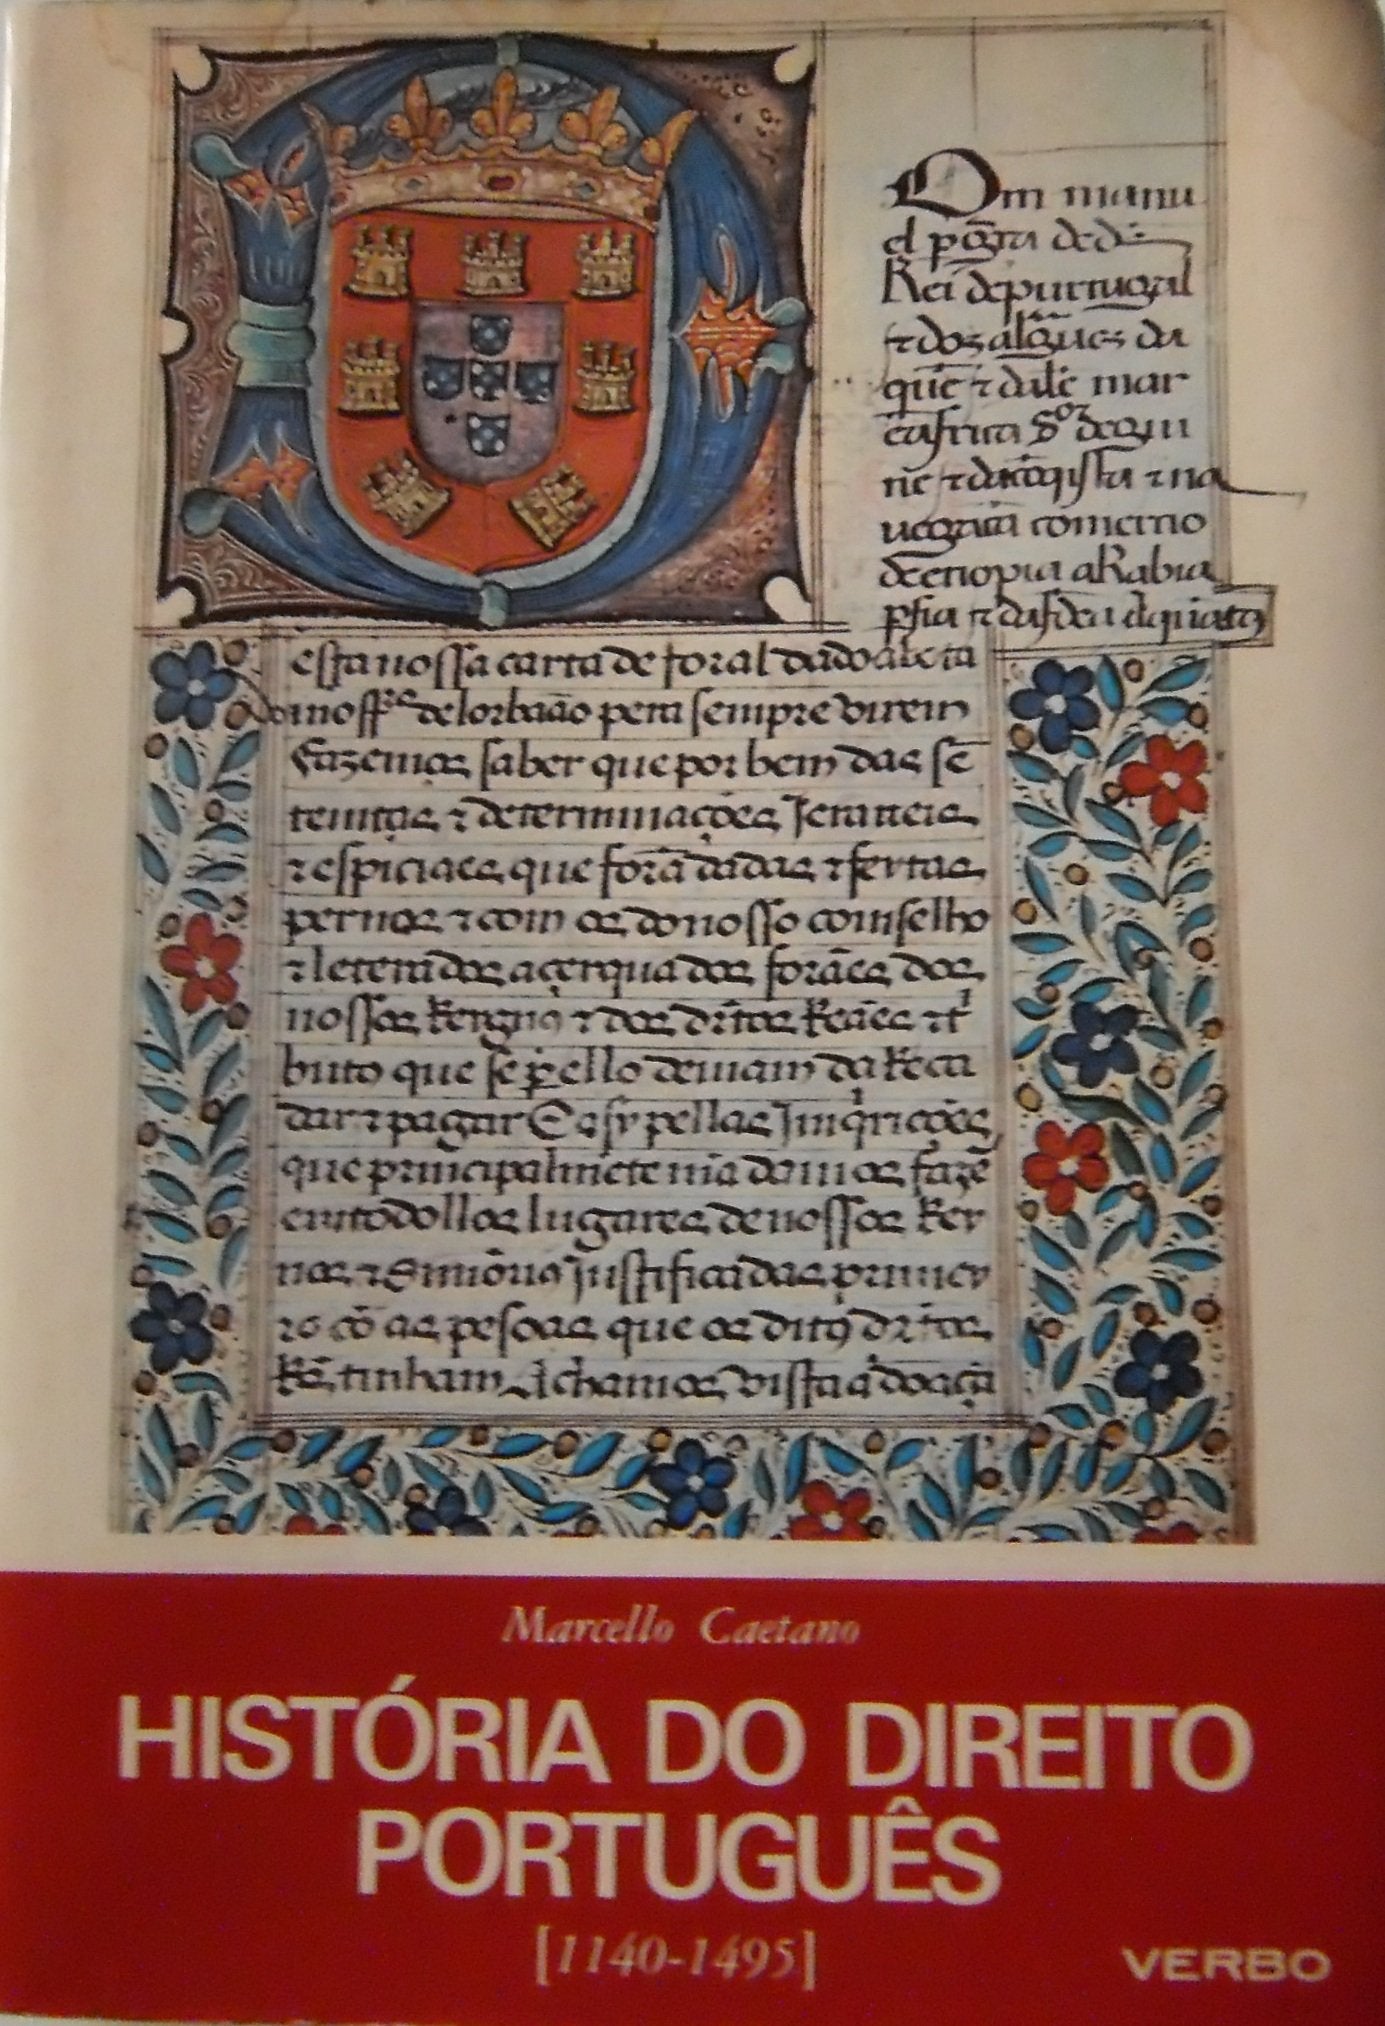 Dom manu
el per graça de ds
Rei de purtugal
& dos algues da
quē & dalē mar
ē africa sōr de gui
nē & da cōqista & na
uegaçā comercio
de etiopia a Rabia
psia & da Jndea A quātos
esta nossa carta de foral dado
mostro de loruão pera sempre virem
Fazemos saber que por bem das sē
tenças & determinações Jeraaeis
& espiciaes que forā dadas & fectas
per nos & com os do nosso comselho
& leterados açerqua dos foraes dos
nossos Reygnos & dos dritos Reaes & t
buto que se per ello deuiam da Reca
dar & pagar E asy pellas Jmqriçoēs
que principalmēte mādamos fazē
em todollos lugares de nossos Rey
nos & Snnorios Justificadas primey
ro cō as pesoas que os ditos dritos
Rs tinham Achamos vista a doaçā
Marcello Caetano
HISTÓRIA DO DIREITO
PORTUGUÊS
[1140-1495]
VERBO